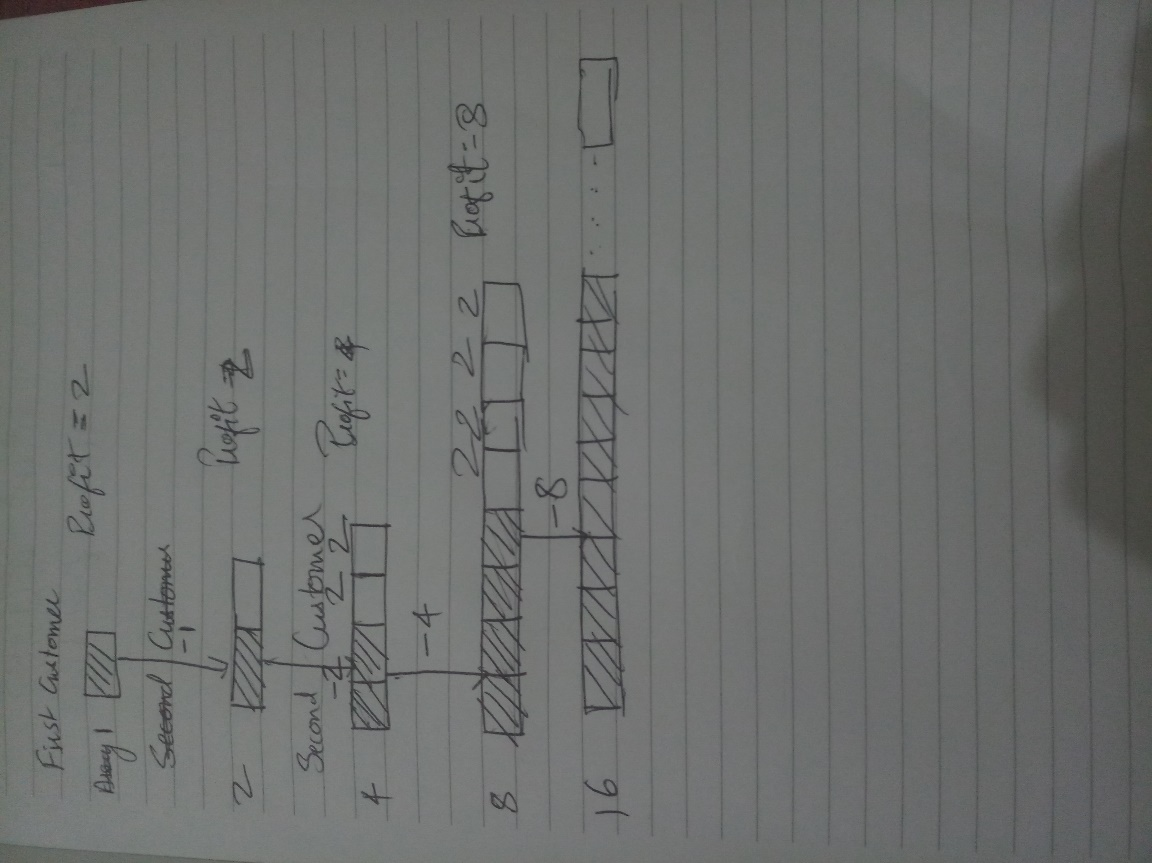 First Customer
Array 1 Profit = 2
Second Customer
-1
2 Profit = 2
Second Customer
-2 2 2
4 Profit = 4
-4
2 2 2 2
8 Profit = 8
-8
16 ....